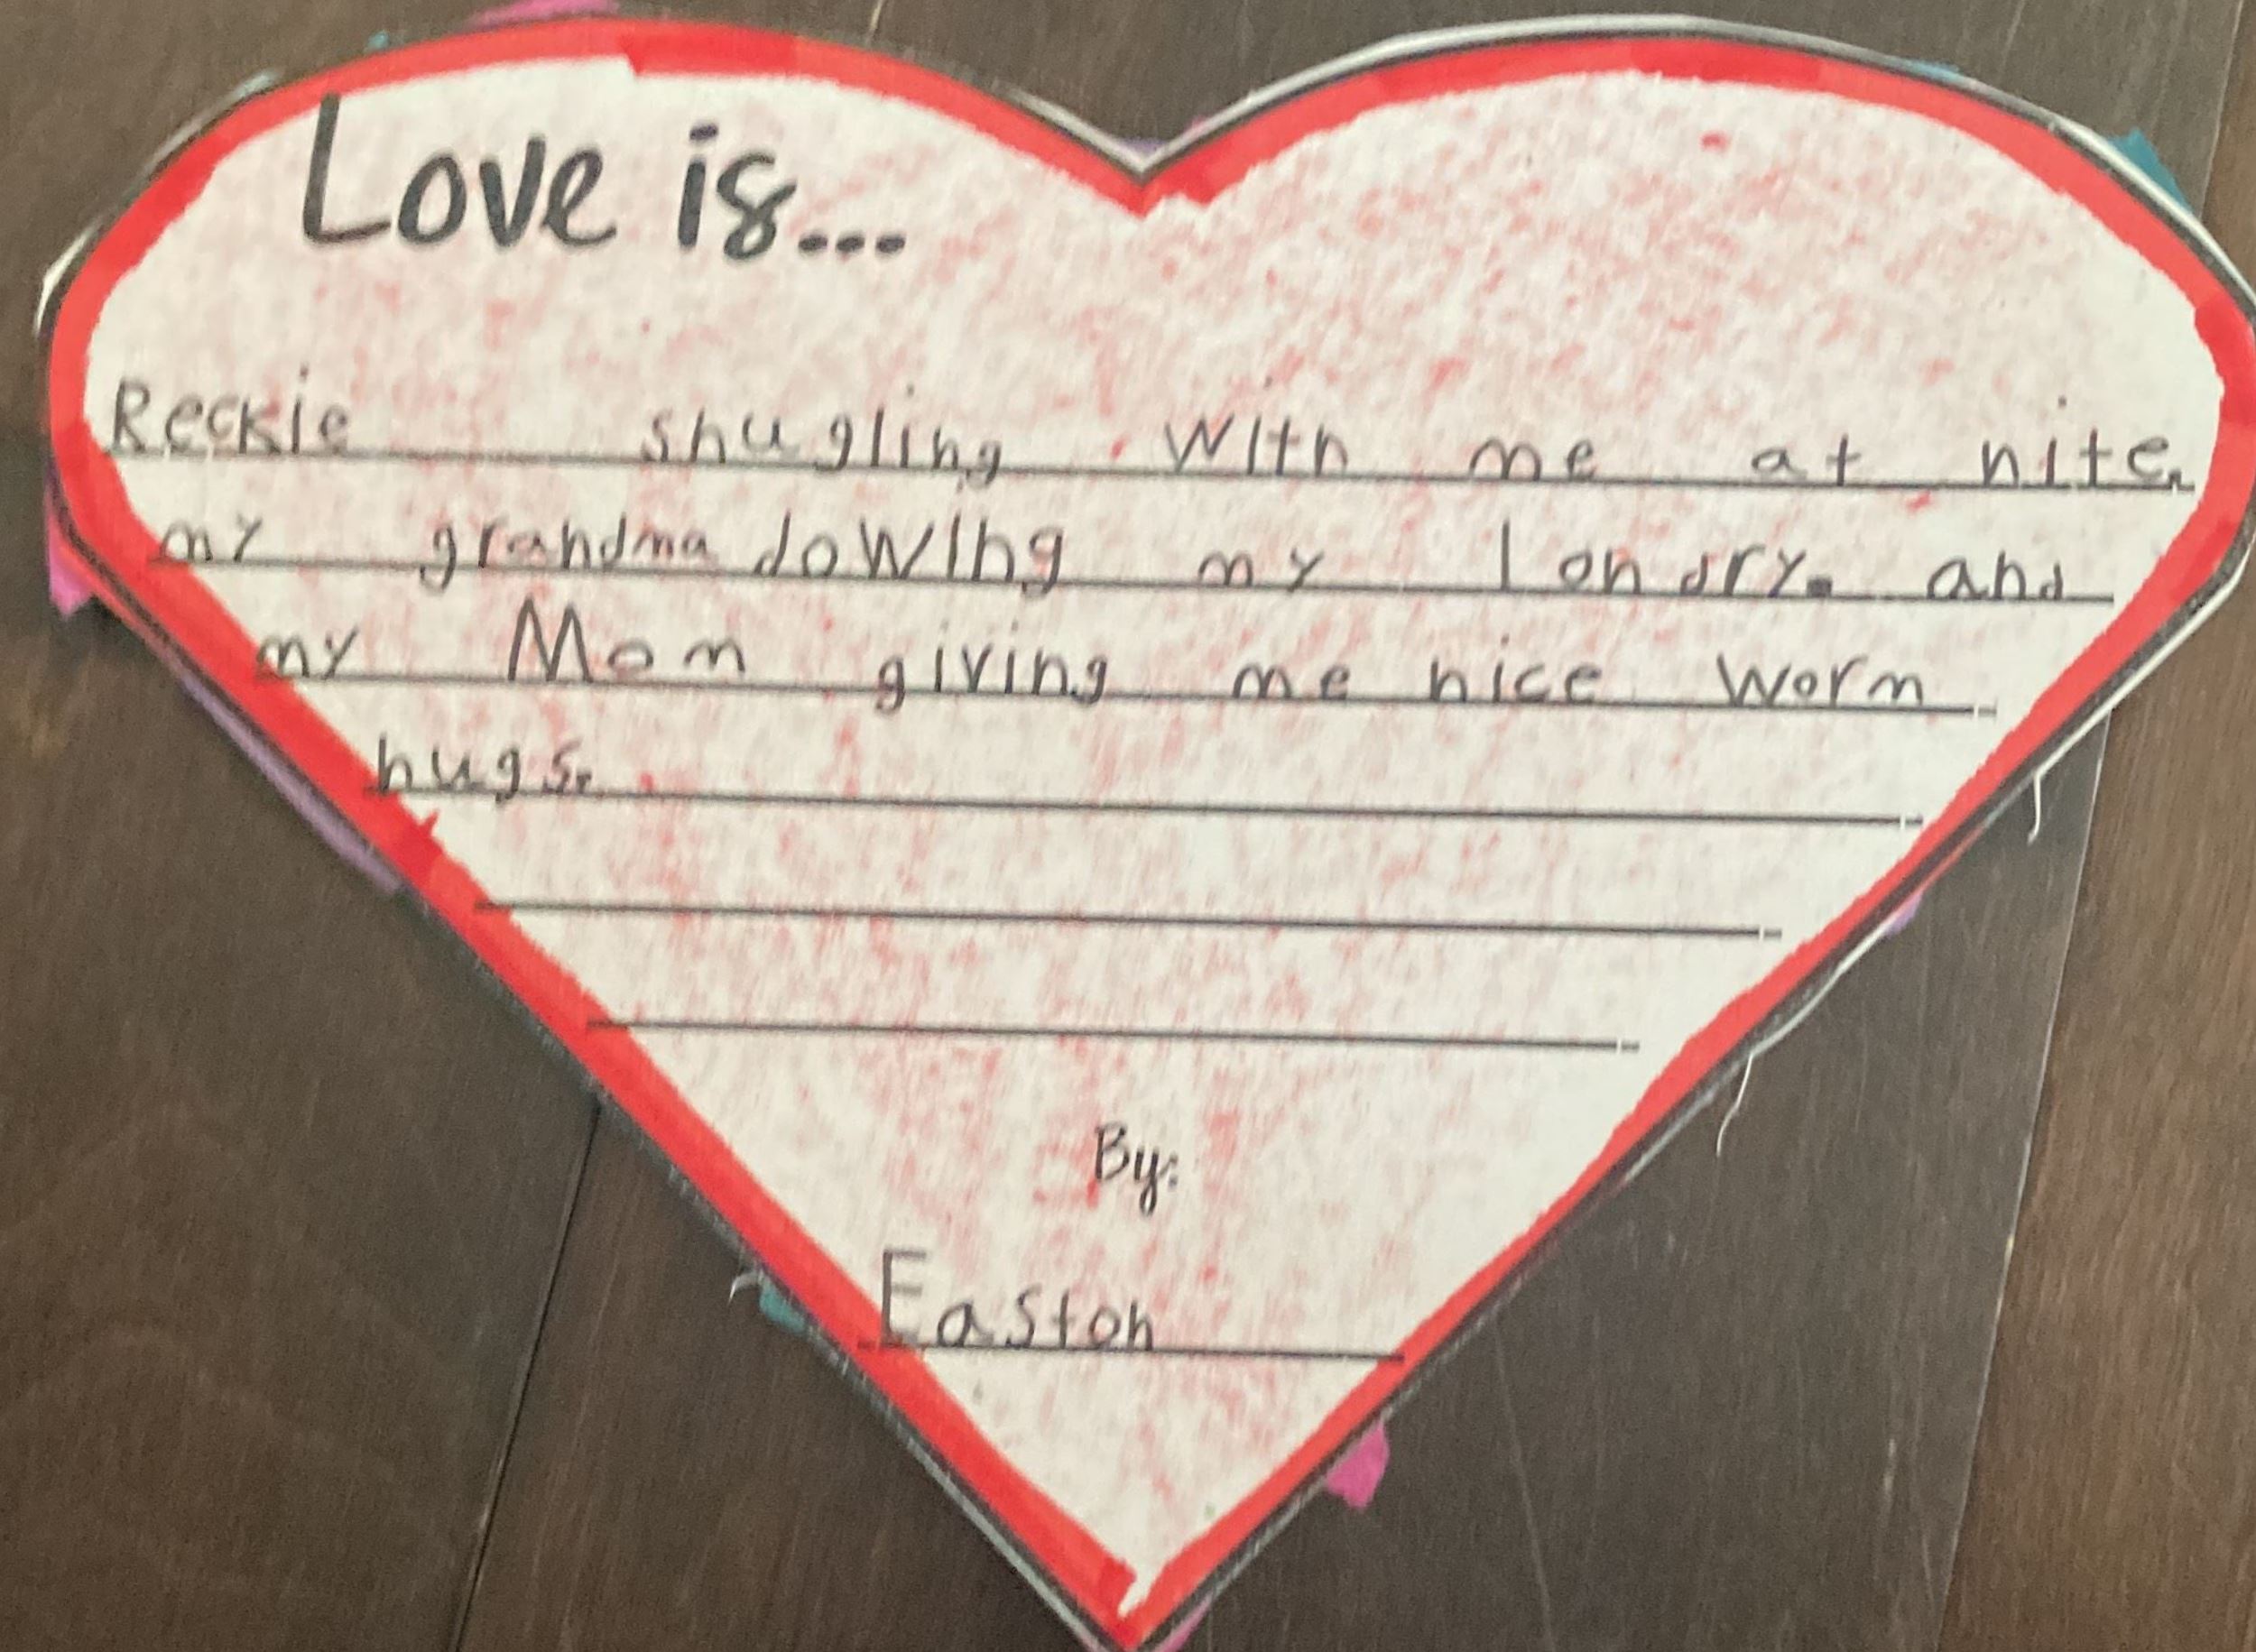 Love is...
Reckie snugling with me at nite.
my grandma dowing my londry. and
my Mom giving me nice worm
hugs.
By:
Easton